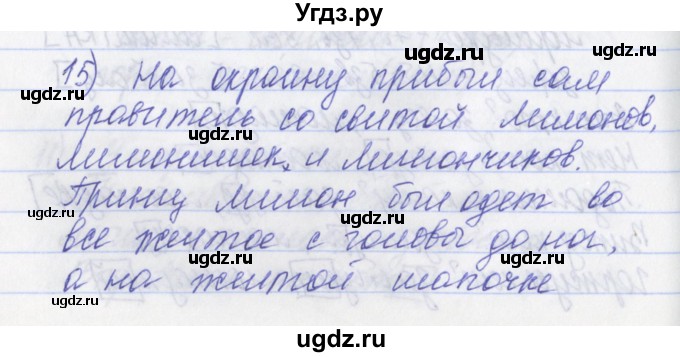 Угдз.ру
15) На окраину прибыл сам
правитель со свитой Лимонов,
Лимонишек и Лимончиков.
Принц Лимон был одет во
все желтое с головы до ног,
а на желтой шапочке
ugdz.ru
ugdz.ru
ugdz.ru
ugdz.ru
ugdz.ru
ugdz.ru
ugdz.ru
ugdz.ru
ugdz.ru
ugdz.ru
ugdz.ru
ugdz.ru